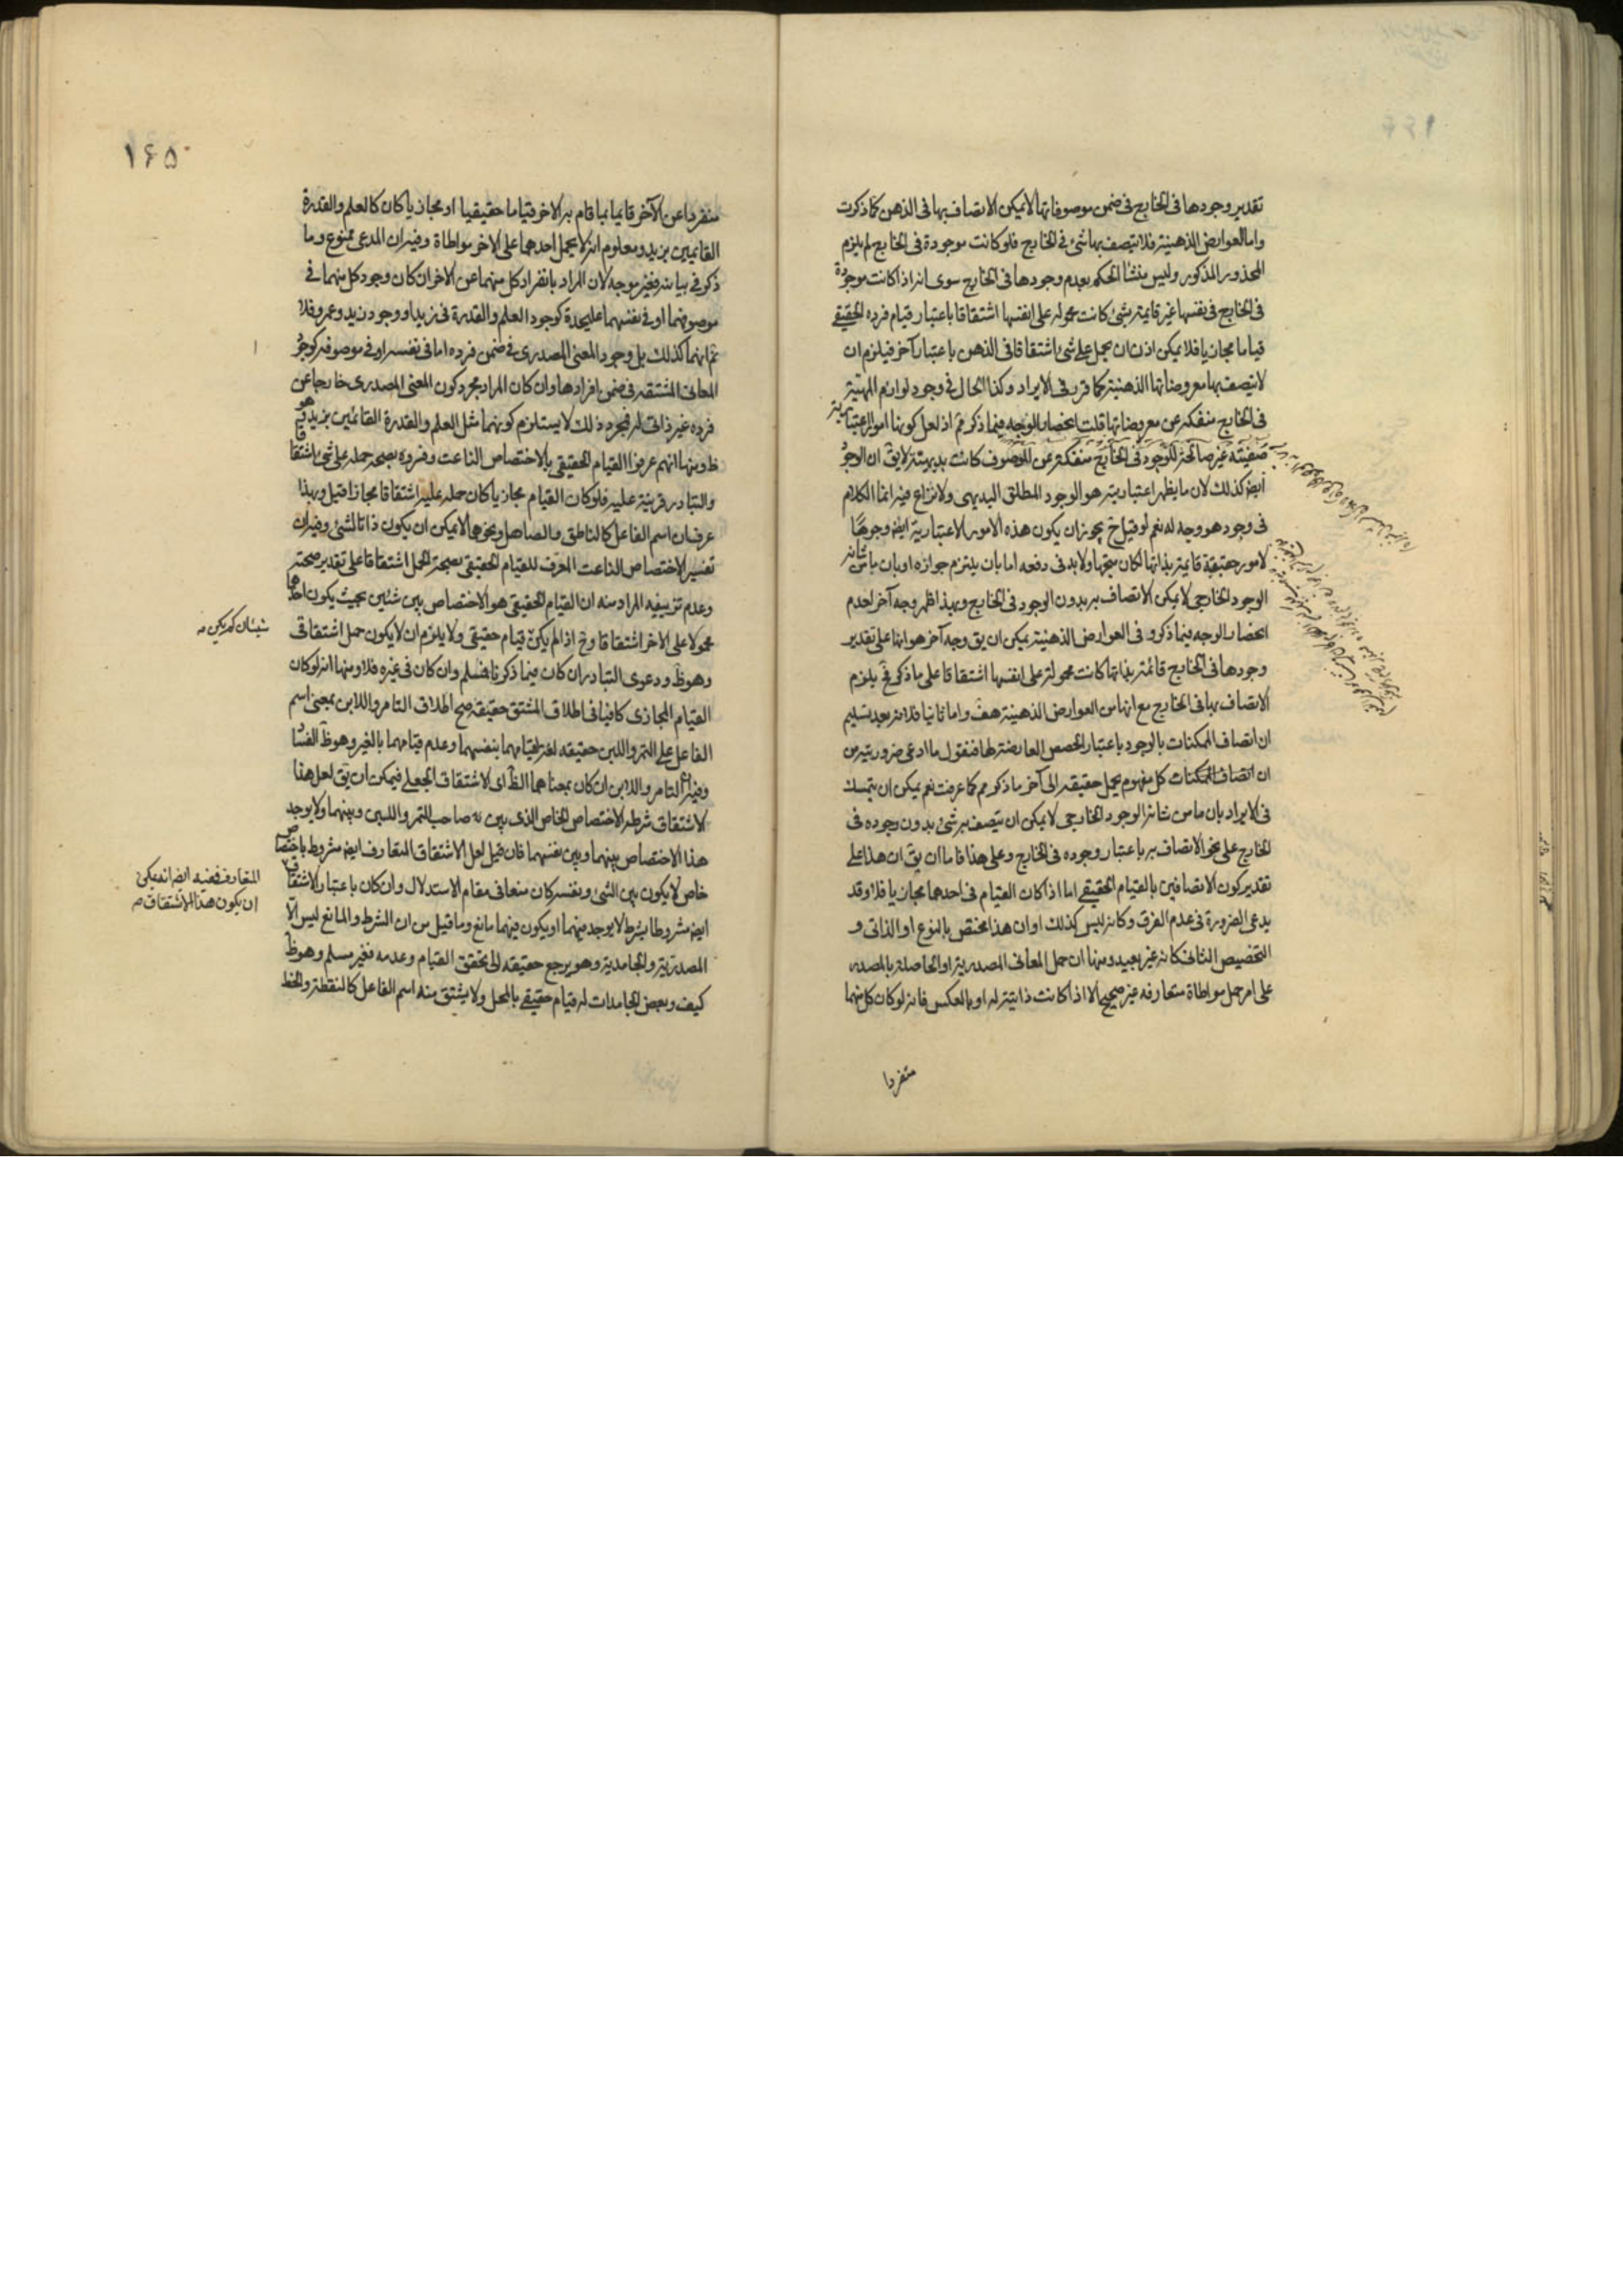 تقدير وجودها فى الخارج فى ضمن موصوفاتها لا يمكن الاتصاف بها فى الذهن كما ذكرت
واما العوارض الذهنية فلا يتصف بها شئ فى الخارج فلو كانت موجودة فى الخارج لم يلزم
المحذور المذكور وليس منشأ الحكم بعدم وجودها فى الخارج سوى انه اذا كانت موجودة
فى الخارج فى نفسها غير قايمة بشئ كانت محمولة على انفسها اشتقاقا باعتبار قيام فرده الحقيقى
قياما مجازيا فلا يمكن اذن ان يحمل على شئ اشتقاقا فى الذهن باعتبار آخر فيلزم ان
لا يتصف بها معروضاتها الذهنية كما قرر فى الايراد وكذا الحال فى وجود لوازم المهية
فى الخارج منفكة عن معروضاتها قلت انحصار الوجه فيما ذكر مم اذ لعل كونها امورا اعتبارية
غير صالحة للوجود فى الخارج منفكة عن الموصوف كانت بديهية لا يق ان الوجود
ايض كذلك لان ما يظهر اعتباريته هو الوجود المطلق البديهى ولا نزاع فيه انما الكلام
فى وجود هو وجه له نعم لو قيل ح يجوز ان يكون هذه الامور الاعتبارية ايض وجوها
لامور حقيقية قايمة بذاتها لكان متجها ولا بد فى دفعه اما بان يلتزم جوازه او بان ما من شانه
الوجود الخارجى لا يمكن الاتصاف به بدون الوجود فى الخارج وبهذا ظهر وجه آخر لعدم
انحصار الوجه فيما ذكر و فى العوارض الذهنية يمكن ان يق وجه آخر هو انها على تقدير
وجودها فى الخارج قائمة بذاتها كانت محمولة على انفسها اشتقاقا على ما ذكر فح يلزم
الاتصاف بها فى الخارج مع انها من العوارض الذهنية هف واما ثانيا فلانه بعد تسليم
ان اتصاف الممكنات بالوجود باعتبار الحصص العارضة لها فنقول ما ادعى ضروريته من
ان اتصاف الممكنات كل مفهوم يحمل حقيقة الى آخر ما ذكر مم كما عرفت نعم يمكن ان يتمسك
فى الايراد بان ما من شانه الوجود الخارجى لا يمكن ان يتصف به شئ بدون وجوده فى
الخارج على نحو الاتصاف به باعتبار وجوده فى الخارج وعلى هذا فاما ان يق ان هذا على
تقدير كون الاتصافين بالقيام الحقيقى اما اذا كان القيام فى احدهما مجازيا فلا وقد
يدعى الضرورة فى عدم الفرق وكانه ليس كذلك او ان هذا مختص بالنوع او الذاتى و
التخصيص الثانى كانه غير بعيد ومنها ان حمل المعانى المصدرية او الحاصلة بالمصدر
على امر حمل مواطاة متعارفه غير صحيح الا اذا كانت ذاتية له او بالعكس فانه لو كان كل منهما
منفردا
١٦٥
منفردا عن الآخر قايما بما قام به الاخر قياما حقيقيا او مجازيا كان كالعلم والقدرة
القايمين بزيد ومعلوم انه لا يحمل احدهما على الاخر مواطاة وفيه ان المدعى ممنوع وما
ذكر فى بيانه فغير موجه لان المراد بانفراد كل منهما عن الاخر ان كان وجود كل منهما فى
موصوفهما او فى نفسهما عليحدة كوجود العلم والقدرة فى زيد او وجود زيد وعمرو فلا
ثم انهما كذلك بل وجود المعنى المصدرى فى ضمن فرده اما فى نفسه او فى موصوفه كوجود
المعانى المشتقة فى ضمن افرادها وان كان المراد مجرد كون المعنى المصدرى خارجا عن
فرده غير ذاتى له فمجرد ذلك لا يستلزم كونهما مثل العلم والقدرة القائمين بزيد وهو
ظ ومنها انهم عرفوا القيام الحقيقى بالاختصاص الناعت وفسروه بصحة حمله على شئ اشتقاقا
والتبادر قرينة عليه فلو كان القيام مجازيا كان حمله عليه اشتقاقا مجازا قيل وبهذا
عرف ان اسم الفاعل كالناطق والصاهل ونحوهما لا يمكن ان يكون ذاتا لشئ وفيه ان
تفسير الاختصاص الناعت المعرف للقيام الحقيقى بصحة الحمل اشتقاقا على تقدير صحته
وعدم تزييفه المراد منه ان القيام الحقيقى هو الاختصاص بين شئين بحيث يكون احدهما
محمولا على الاخر اشتقاقا وح اذا لم يكن قيام حقيقى ولا يلزم ان لا يكون حمل اشتقاقى
وهو ظ ودعوى التبادر ان كان فيما ذكرنا فمسلم وان كان فى غيره فلا ومنها انه لو كان
القيام المجازى كافيا فى اطلاق المشتق حقيقة صح اطلاق التامر واللابن بمعنى اسم
الفاعل على التمر واللبن حقيقه لغة لقيامهما بنفسهما وعدم قيامهما بالغير وهو ظ الفساد
وفيه ان التامر واللابن ان كان بمعناهما الظ اى الاشتقاق الجعلى فيمكن ان يق لعل هذا
الاشتقاق شرطه الاختصاص الخاص الذى بين صاحب التمر واللبن وبينهما ولا يوجد
هذا الاختصاص بينهما وبين نفسهما فان قيل لعل الاشتقاق المتعارف ايض مشروط باختصاص
خاص لا يكون بين الشئ ونفسه كان منعا فى مقام الاستدلال وان كان باعتبار الاشتقاق
ايض مشروطا بشرط لا يوجد فيهما او يكون فيهما مانع وما قيل من ان الشرط والمانع ليس الا
المصدرية والجامدية وهو يرجع حقيقه الى تحقق القيام وعدمه فغير مسلم وهو ظ
كيف وبعض الجامدات له قيام حقيقى بالمحل ولا يشتق منه اسم الفاعل كالنقطة والخط
المتعارف ففيه ايض انه يمكن
ان يكون هذا الاشتقاق